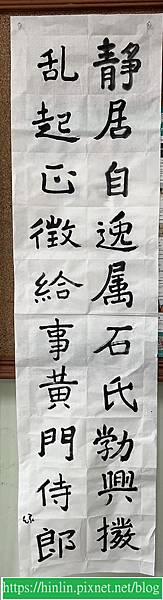 静居自逸属石氏勃興擾
乱起正徵給事黃門侍郎
https://hinlin.pixnet.net/blog